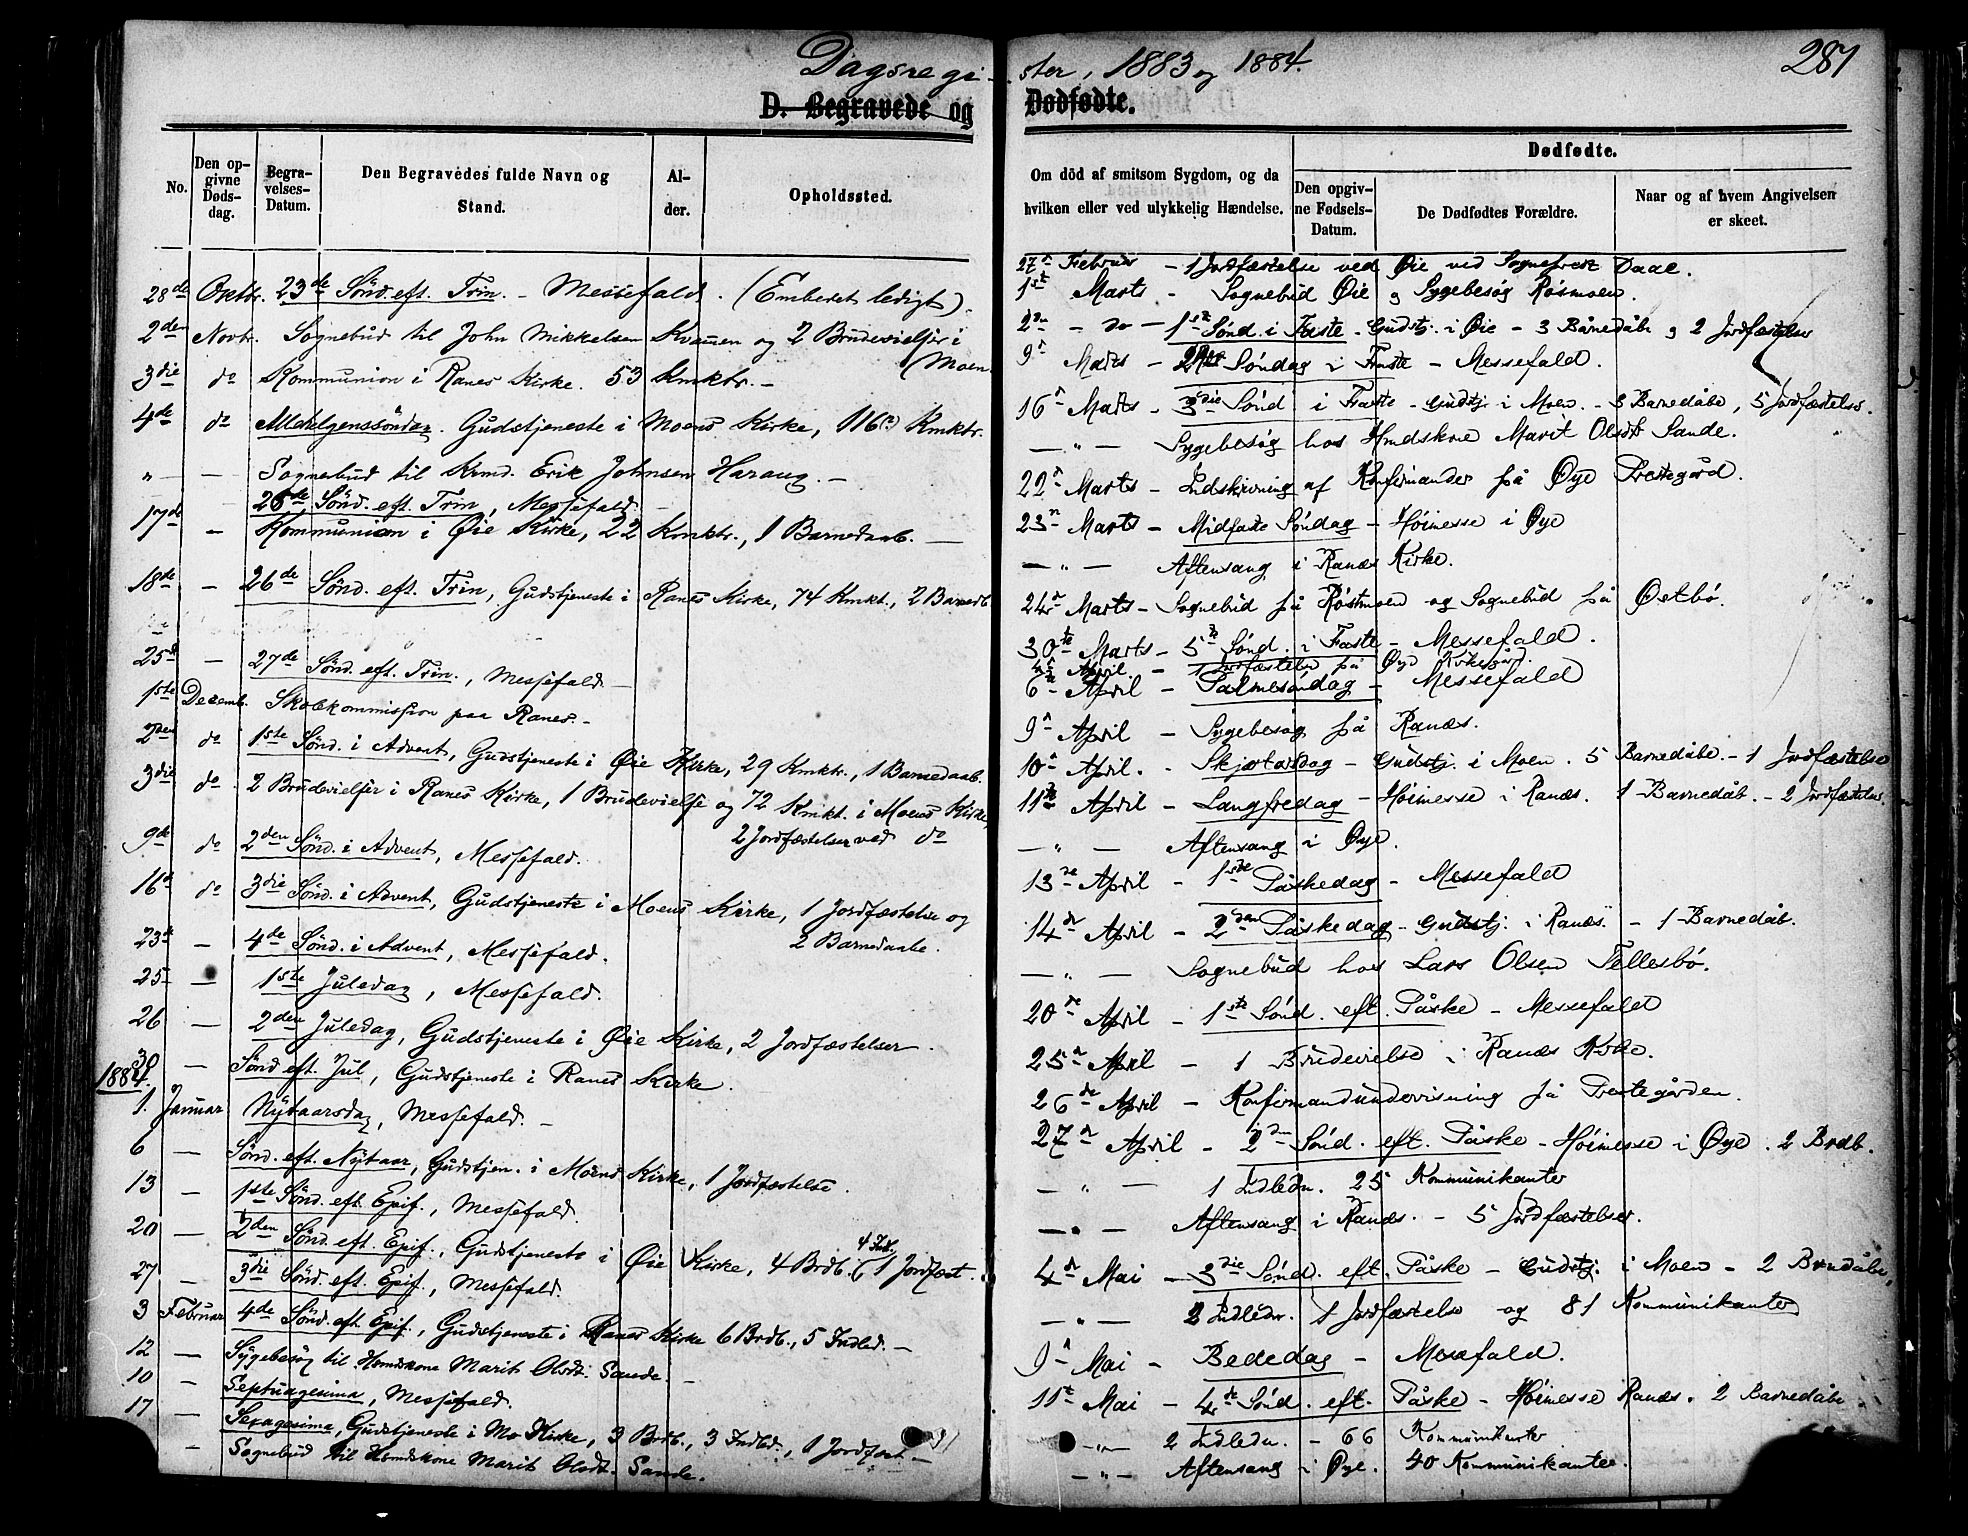 Dagsregi-
D. Begravede og
No.
Den opgivne Døds-dag.
Begravelses-Datum.
Den Begravedes fulde Navn og Stand.
Alder.
Opholdssted.
28de Oktbr. 23de Sönd. eft. Trin. - Messefald. (Embedet ledigt).
2den Novbr. Sognebud til John Mikkelsen Kvanen og 2 Brudevielser i
(Moen.
3die do Kommunion i Ranes Kirke. 53 Kmktr. -
4de do Allehelgenssöndag. Gudstjeneste i Moens Kirke, 116 Kmktr.
" — Sognebud til Krmd. Erik Johnsen Haraug. -
25de Sönd. eft. Trin, Messefald -
17de — Kommunion i Øie Kirke, 22 Kmktr., 1 Barnedaab. —
18de — 26de Sönd. eft. Trin, Gudstjeneste i Ranes Kirke, 74 Kmkt., 2 Barnedb
25de — 27de Sönd. eft. Trin., Messefald -
1ste Decemb. Skolekommission paa Ranes -
2den do 1ste Sönd. i Advent, Gudstjeneste i Øie Kirke, 29 Kmktr., 1 Barnedaab.
3die do 2 Brudevielser i Ranes Kirke, 1 Brudevielse og 72 Kmkt. i Moens Kirke,
2 Jordfæstelser ved do
9de do 2den Sönd. i Advent, Messefald.
16de do 3die Sönd. i Advent, Gudstjeneste i Moens Kirke, 1 Jordfæstelse og
2 Barnedaabe.
23de — 4de Sönd. i Advent, Messefald.
25 — 1ste Juledag, Messefald.
26 — 2den Juledag, Gudstjeneste i Øie Kirke, 2 Jordfæstelser.
30 — Sönd eft. Jul, Gudstjeneste i Ranes Kirke.
1884.
1. Januar Nytaarsdag, Messefald. -
6 — Sönd. eft. Nytaar, Gudstjen. i Moens Kirke, 1 Jordfæstelse.
13 — 1ste Sönd. eft. Epif., Messefald.
20 — 2den Sönd. eft. Epif., Gudstjeneste i Øie Kirke, 4 Brdb. 4 Indl. 1 Jordfæst.
27 — 3die Sönd. eft. Epif., Messefald.
3 Februar 4de Sönd. eft. Epif., Gudstjeneste i Ranes Kirke 6 Brdb., 5 Indled. -
12 — Sygebesög til Hmdskone Marit Olsdt. Sande. -
10 — Septuagesima, Messefald.
17 — Sexagesima, Gudstjeneste i Mo Kirke, 3 Brdb., 3 Indled., 1 Jordfæst -
— Sognebud til Hmdskone Marit Olsdt. Sande.
ster, 1883 og 1884.
281
Dødfødte.
Om död af smitsom Sygdom, og da hvilken eller ved ulykkelig Hændelse.
Dødfødte.
Den opgivne Fødsels-Datum.
De Dødfødtes Forældre.
Naar og af hvem Angivelsen er skeet.
27de Februar - 1 Jordfæstelse ved Øie ved Sogneprest Daae.
1ste Marts - Sognebud Øie og Sygebesøg Røsmoen.
2den — do — 1ste Sönd. i Faste - Gudstj. i Øie - 3 Barnedåb og 2 Jordfæstelser
9de Marts - 2den Söndag i Faste - Messefald.
16de Marts - 3die Sönd i Faste - Gudstj. i Moen. - 3 Barnedåbe, 5 Jordfæstelser.
— " — Sygebesög hos Hmdskone Marit Olsdt Sande.
22de Marts - Indskrivning af Konfirmander på Øye Prestegård.
23de Marts - Midfaste Söndag - Höimesse i Øye
— " — Aftensang i Ranæs Kirke.
24de Marts - Sognebud på Røstmoen og Sognebud på Østbø.
30te Marts - 5te Sönd. i Faste - Messefald.
4de April - 1 Jordfæstelse på Øye Kirkegård.
6te April - Palmesöndag - Messefald
9de April - Sygebesög på Ranæs.
10de April. - Skjærtorsdag - Gudstj. i Moen. 5 Barnedåbe - 1 Jordfæstelse
11te April - Langfredag - Höimesse i Ranæs. 1 Barnedåb. - 2 Jordfæstelser.
— " — Aftensang i Øye.
13de April - 1ste Påskedag - Messefald
14de April - 2den Påskedag - Gudstj. i Ranæs - 1 Barnedåb.
— " — Sognebud hos Lars Olsen Tellesbø.
20de April - 1ste Sönd. eft. Påske - Messefald
25de April - 1 Brudevielse i Ranæs Kirke.
26de April - Konfirmandundervisning på Prestegården.
27de April - 2den Sönd. eft. Påske - Höimesse i Øye. 2 Brdb.
— " — 1 Indledn. 25 Kommunikanter
— " — Aftensang i Ranæs. - 5 Jordfæstelser.
4de Mai - 3die Sönd. eft. Påske - Gudstj. i Moen - 2 Barnedåbe,
— " — 2 Indledn. 1 Jordfæstelse og 81 Kommunikanter
9de Mai - Bededag - Messefald.
11te Mai - 4de Sönd. eft. Påske - Höimesse Ranæs. 2 Barnedåbe
— " — 2 Indledn. - 66 Kommunikanter
— " — Aftensang i Øye. 40 Kommunikanter.